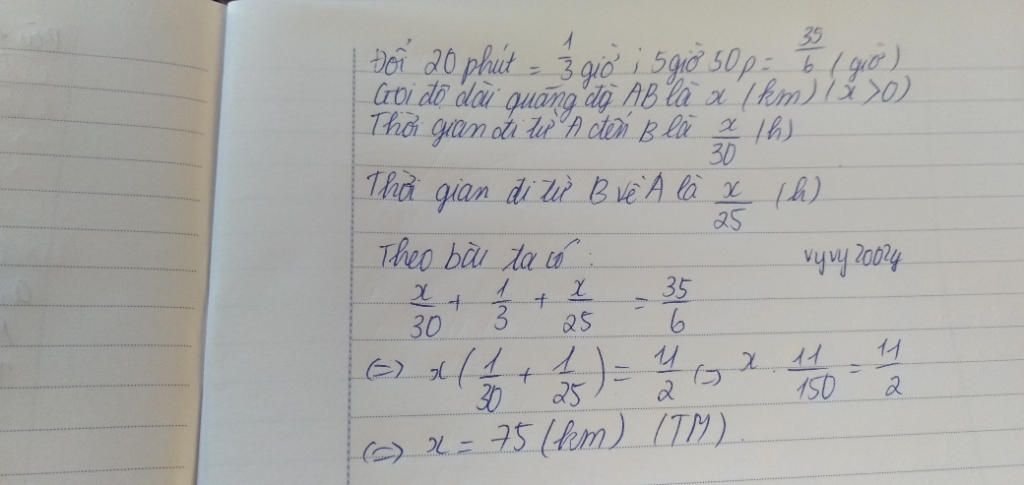 Đổi 20 phút = 1/3 giờ ; 5 giờ 50p = 35/6 (giờ)
Gọi độ dài quãng đg AB là x (km) (x >0)
Thời gian đi từ A đến B là x/30 (h)
Thời gian đi từ B về A là x/25 (h)
Theo bài ta có :
vyvy2002y
x/30 + 1/3 + x/25 = 35/6
(=) x(1/30 + 1/25) = 11/2 (=) x . 11/150 = 11/2
(=) x = 75 (km) (TM).